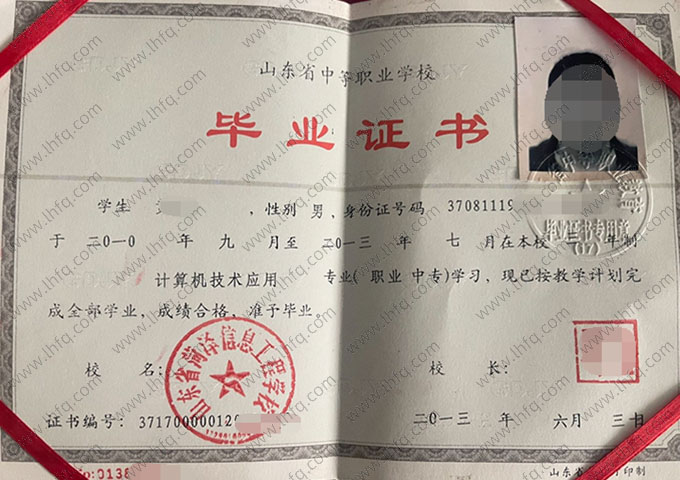 山东省中等职业学校
毕业证书
学生 ，性别 男，身份证号码 37081119
于 二〇一〇 年 九 月至 二〇一三 年 七 月在本校 三 年制
计算机技术应用 专业( 职业 中专)学习，现已按教学计划完
成全部学业，成绩合格，准予毕业。
校 名：
山东省菏泽信息工程学校
校 长：
证书编号：371700000120
二〇一三 年 六月 三 日
No:0138
山东省 印制
毕业证书专用章
(17)
www.lhfq.com